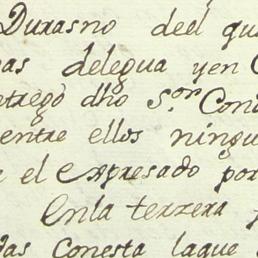 Durasno deel qu
as delegua yen C
etregò dho S.or Con
entre ellos ningu
e el expresado por
Enla terzera
das Conesta laque